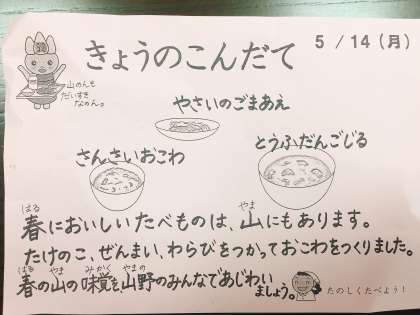 きょうのこんだて
5/14(月)
山のんも
だいすき
なのん。
やさいのごまあえ
さんさいおこわ
とうふだんごじる
春(はる)においしいたべものは、山(やま)にもあります。
たけのこ、ぜんまい、わらびをつかっておこわをつくりました。
春(はる)の山(やま)の味覚(みかく)を山野(やまの)のみんなであじわい
ましょう。
たのしくたべよう!